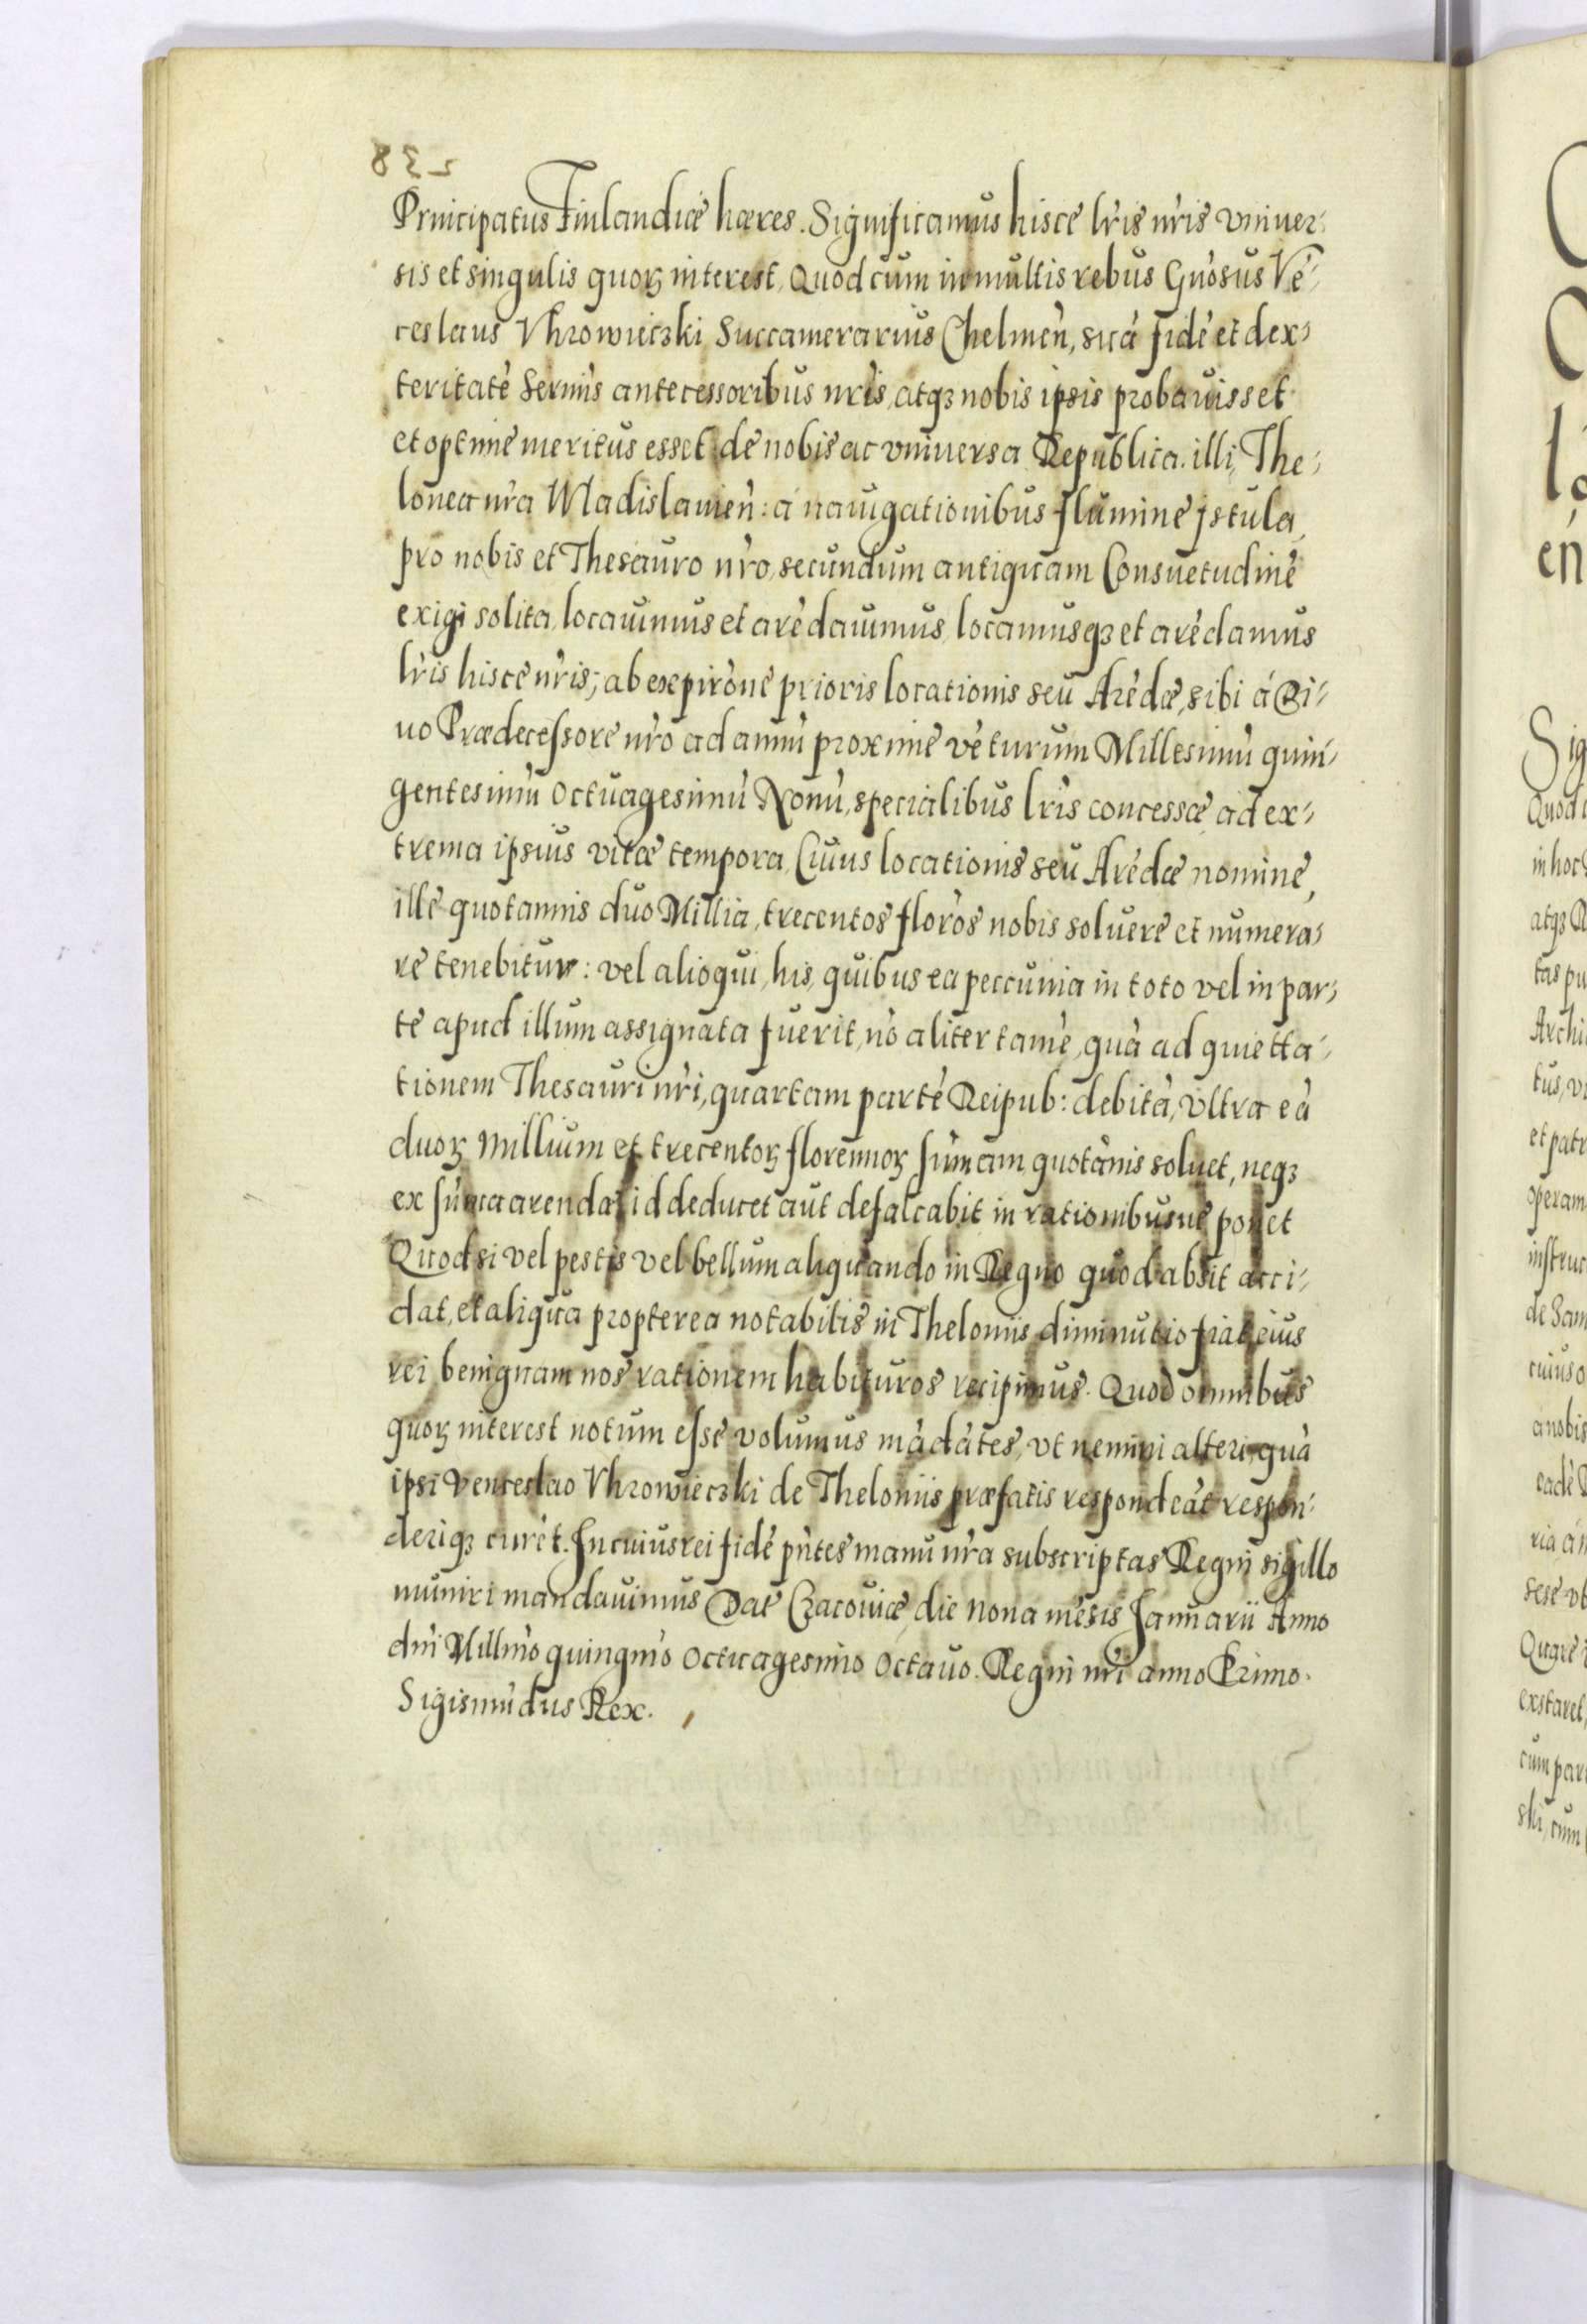 238
Principatus Finlandiæ hæres. Significamus hisce lr̃is nr̃is vniuer-
sis et singulis quorꝫ interest, Quod cum in multis rebus Gnõsus Vẽ-
ceslaus Vhrowieczki Succamerarius Chelmeñ, suã fidẽ et dex-
teritatẽ Sermis antecessoribus nr̃is, atqꝫ nobis ipsis probauisset
et optime meritus esset de nobis ac vniuersa Republica. illi, The-
lonea nr̃a Wladislauieñ: á nauigationibus flumine jstula,
pro nobis et Thesauro nr̃o, secundum antiquam Consuetudinẽ
exigi solita, locauimus et arẽdauimus, locamusqꝫ et arẽdamus
lr̃is hisce nr̃is; ab expirõne prioris locationis seu Arẽdæ, sibi á Di-
uo Prædecessore nr̃o ad annũ proxime vẽturum Millesimũ quin-
gentesimũ Octuagesimũ Nonũ, specialibus lr̃is concessæ, ad ex-
trema ipsius vitæ tempora, Cuius locationis seu Arẽdæ nomine,
ille quotannis duo Millia, trecentos florõs nobis soluere et numera-
re tenebitur: vel alioqui, his, quibus ea peccunia in toto vel in par-
te apud illum assignata fuerit, nõ aliter tamẽ, quã ad quietta-
tionem Thesauri nr̃i, quartam partẽ Reipub: debitã, vltra eã
duorꝫ Millium et trecentorꝫ florennorꝫ sum̃am, quotãnis soluet, neqꝫ
ex sum̃a arendæ id deducet aut defalcabit in rationibusue ponet
Quod si vel pestis vel bellum aliquando in Regno quod absit acci-
dat, et aliqua propterea notabilis in Theloniis diminutio fiat, eius
rei benignam nos rationem habituros recipimus. Quod omnibus
quorꝫ interest notum esse volumus mãdãtes, vt nemini alteri, quã
ipsi Venceslao Vhrowieczki de Theloniis præfatis respondeãt respon-
deriqꝫ curẽt. In cuius rei fidẽ pñtes manu nr̃a subscriptas Regni sigillo
muniri mandauimus Dat Cracouiæ, die Nona mẽsis Januarii Anno
dñi Millm̃o quingm̃o Octuagesimo Octauo. Regni nr̃i anno Primo.
Sigismũdus Rex.